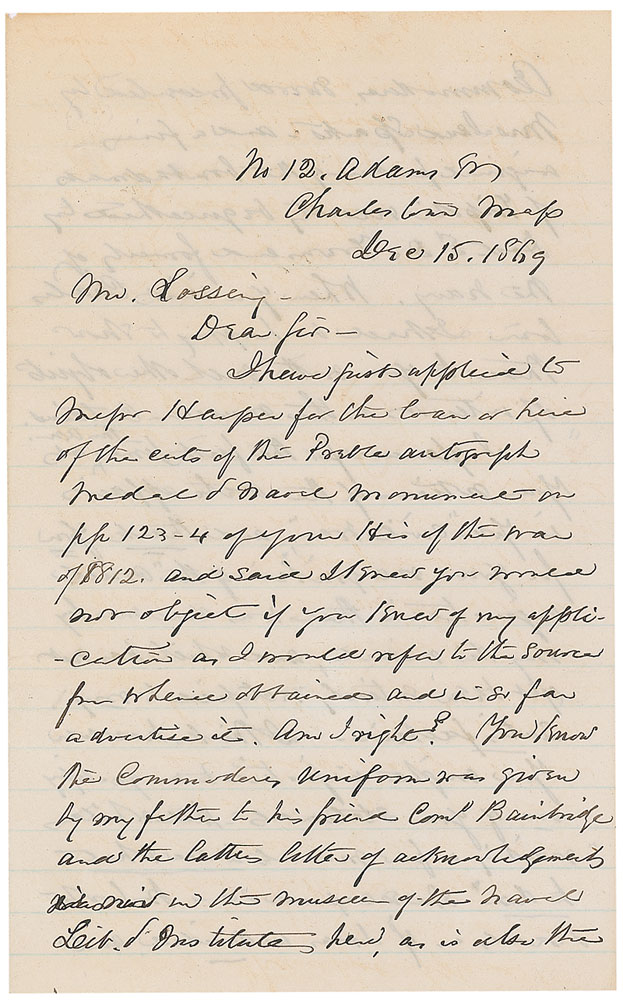 No 12. Adams St
Charlestown Mass
Dec 15. 1869
Mr. Lossing –
Dear Sir –
I have just applied to
Messrs Harper for the loan or hire
of the cuts of the Preble autograph
Medal & Naval Monument on
pp 123-4 of your His of the war
of 1812. and said I knew you would
not object if you knew of my appli-
-cation as I would refer to the source
from whence obtained and in so far
advertise it. Am I right? You know
the Commodores Uniform was given
by my father to his friend Comd Bainbridge
and the latters letter of acknowledgments
in the museum of the Naval
Lib. & Institute, here, as is also the